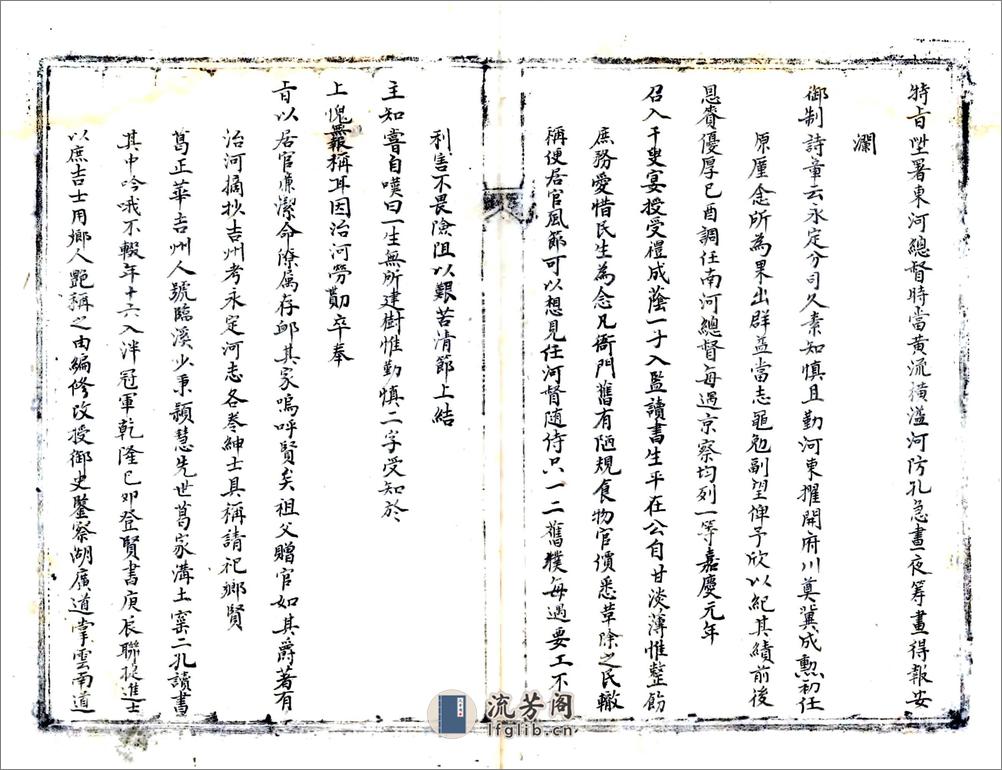 特旨陞署東河總督時當黄流横溢河防孔急晝夜籌畫得報安
瀾
御制詩章云永定分司久素知慎且勤河東擢開府川奠冀成勲初任
原厪念所為果出群益當志黽勉副望俾予欣以紀其績前後
恩賚優厚已酉調任南河總督每遇京察均列一等嘉慶元年
召入千叟宴授受禮成蔭一子入監讀書生平在公自甘淡薄惟整飭
庶務愛惜民生為念凡衙門舊有陋規食物官價悉革除之民輙
稱便居官風節可以想見任河督随侍只一二舊僕每遇要工不
利害不畏險阻以艱苦清節上結
主知嘗自嘆曰一生無所建樹惟勤慎二字受知於
上愧無報稱耳因治河勞勩卒奉
旨以居官亷潔命僚属存邱其家嗚呼賢矣祖父贈官如其爵著有
治河摘抄吉州考永定河志各卷紳士具稱請祀鄉賢
葛正華吉州人號臨溪少秉颖慧先世葛家溝土窰二孔讀書
其中吟哦不輟年十六入泮冠軍乾隆已卯登賢書庚辰聯捷進士
以庶吉士用鄉人艷稱之由編修改授御史鑒察湖廣道掌雲南道
流芳阁
lfglib.cn